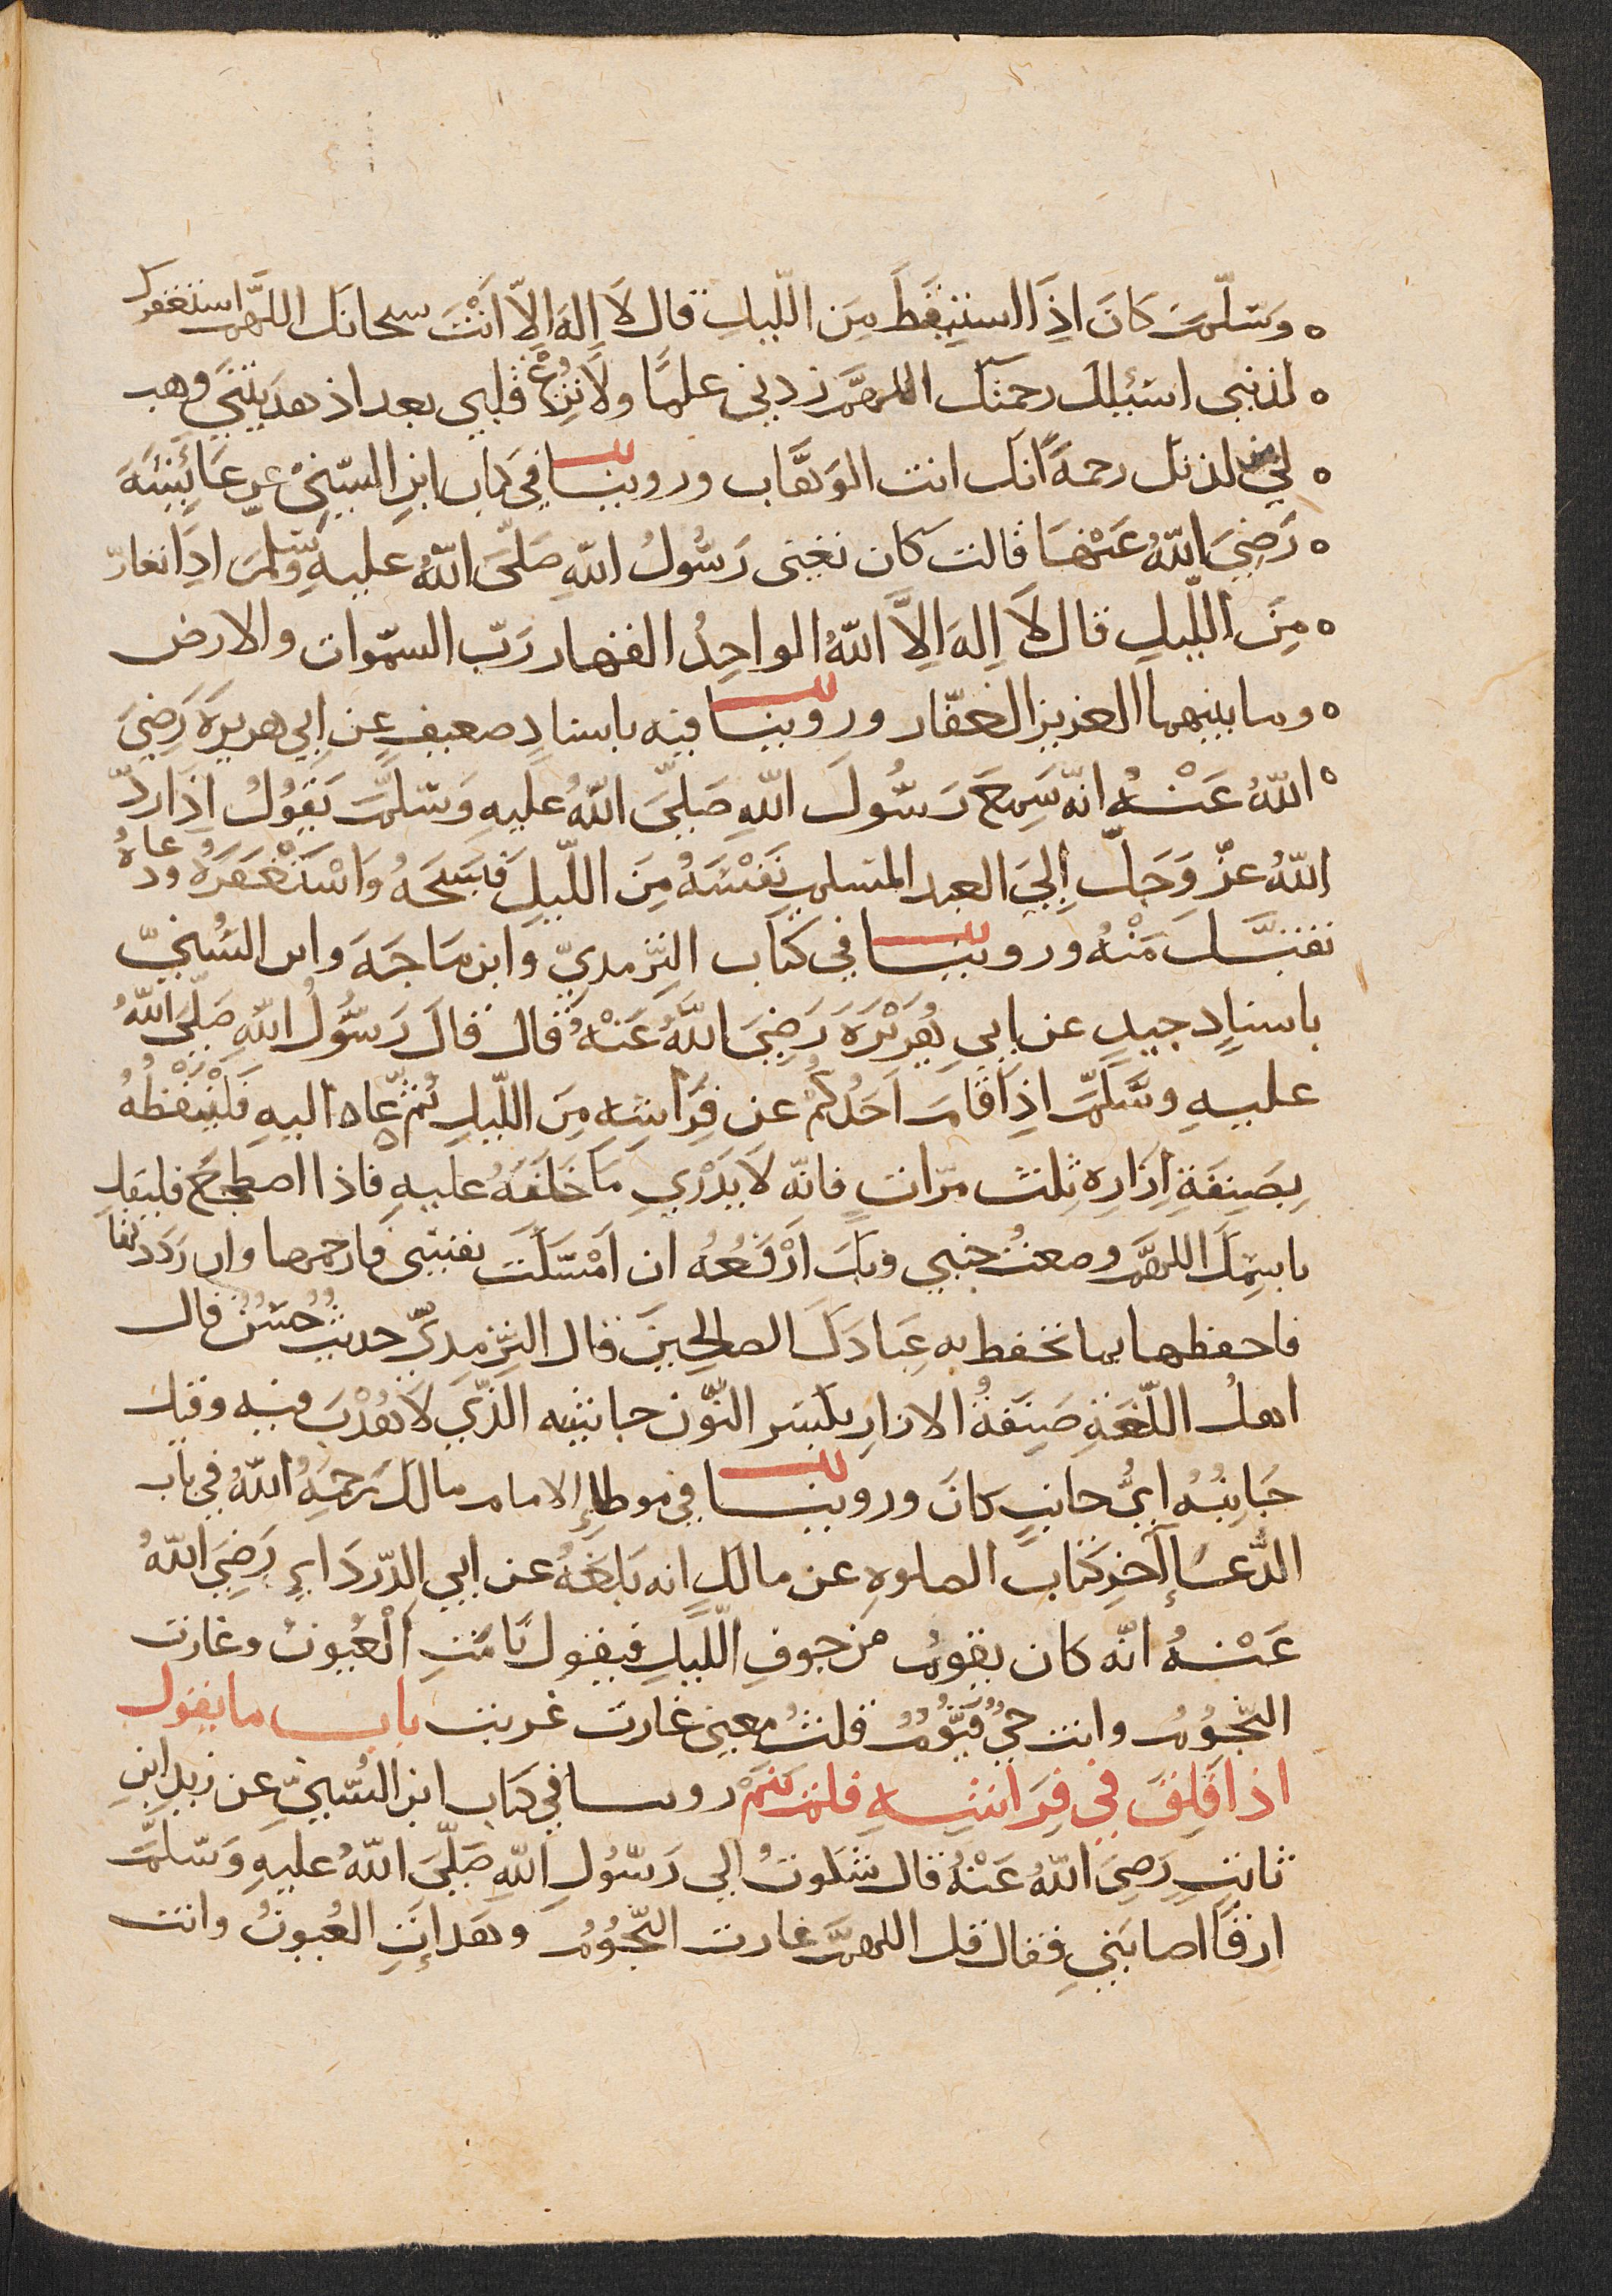 وسلم كان اذا استيقظ من الليل قال لا اله الا انت سبحانك اللهم استغفرك
لذنبي اسئلك رحمتك اللهم زدني علما ولا تزغ قلبي بعد اذ هديتني وهب
لي من لدنك رحمة انك انت الوهاب وروينا في كتاب ابن السني عن عائشة
رَضِيَ اللهُ عَنْهَا قالت كان تعني رَسُولُ اللهِ صَلَّى اللهُ عليهِ وسلم اذا تعارّ
مِنَ الليلِ قال لَا اِلهَ اِلَّا اللهُ الواحِدُ القهار رَبّ السّموات والارض
وما بينهما العزيز الغفّار وروينا فيه باسنادٍ ضعيف عن ابي هريرَة رَضِيَ
اللهُ عَنْهُ انّه سَمِعَ رَسُولَ اللهِ صَلَّى اللهُ عليهِ وَسلّم يَقُولُ اِذَا ردّ
اللهُ عزّ وَجلّ اِلىَ العبد المسلم نَفْسَهُ مِنَ اللّيلِ فسَبحَهُ وَاسْتَغْفَرَهُ ودعاهُ
تقبَّل مِنْهُ وروينا في كتاب التّرمديّ وابن مَاجَهَ وابن السُنيّ
باسنادٍ جيدٍ عن ابي هُرَيْرَةَ رَضِيَ اللهُ عَنْهُ قال قالَ رَسُولُ اللهِ صَلّى اللهُ
عليهِ وسَلَّم اذِا قامَ اَحَدُكُمْ عن فِرَاشِهِ مِنَ اللّيلِ ثُمّ عَاد اليهِ فَلْيَنْفُظْهُ
بِصَنِفَةِ اِزَارِه ثلث مرّات فانّه لَا يَدْرِي مَا خَلَفَهُ عليهِ فاذا اضطجع فليقل
باسمِكَ اللهمَّ وضعتُ جنبي وبكَ ارْفَعُهُ ان اَمْسَكتَ نفسِي فارحمها وان رَدَدتها
فاحفظها بما تحفظ به عِبَادَكَ الصالحِينَ قال التّرمديّ حديثٌ حَسَنٌ قال
اهلُ اللّغَةِ صَنِفةُ الازارِ بكسر النّون جانبه الّذي لَا هُدْبَ فيه وقيل
جَانِبُهُ ايُّ جانبٍ كانَ وروينا في موطاءِ الامام مالك رَحِمَهُ اللهُ في باب
الدُّعَاءِ آخِر كتاب الصلوة عن مالك انه بَلَغَهُ عن ابي الدّردَاءِ رَضِيَ اللهُ
عَنْهُ انّه كان يقومُ من جوفِ اللّيلِ فيقول نَامَتِ الْعُيونُ وغارت
النّجُومُ وانت حيٌّ قيّومٌ قلتُ معنى غارت غربت باب ما يقول
اذا قلِقَ في فِرَاشِهِ فلم يَنَمْ روينا في كتاب ابن السُّنيّ عن زيدِ ابنِ
ثابتٍ رَضِيَ اللهُ عَنْهُ قال شكوتُ الى رَسُولِ اللهِ صَلّىَ اللهُ عليهِ وَسَلّمَ
ارقًا اصابَنِي فقال قل اللهمّ غارت النّجُومُ وهَدأتِ العُيونُ وانت